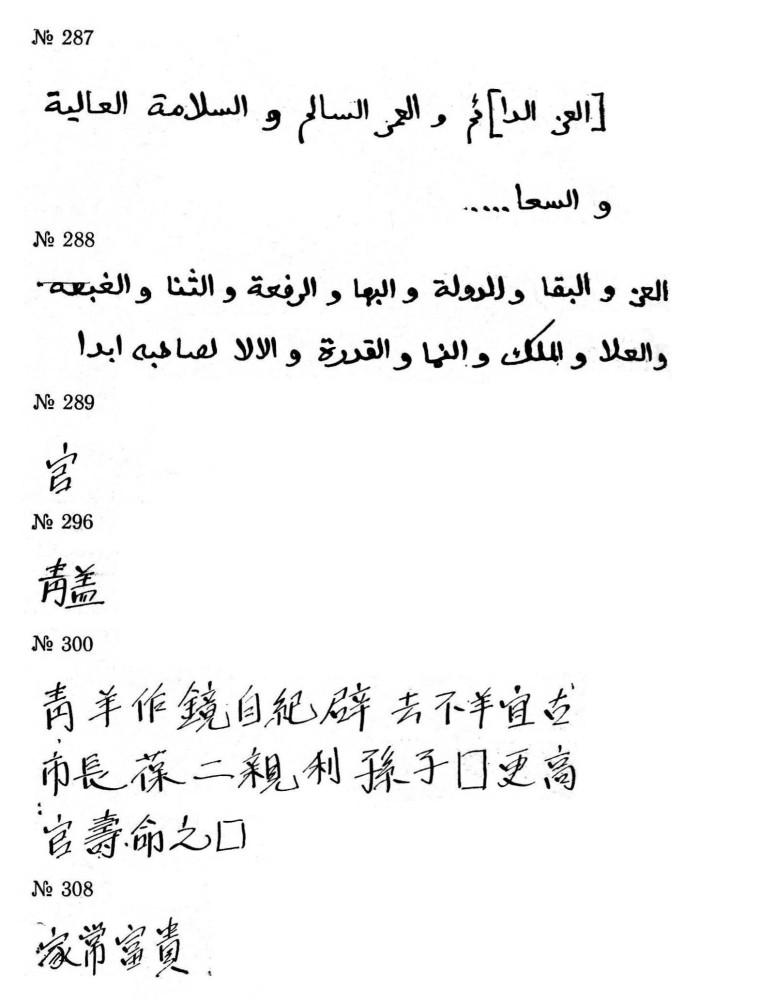 № 287
[العز الدا]ئم و العمر السالم و السلامة العالية
و السعا.....
№ 288
العز و البقا و الدولة و البها و الرفعة و الثنا و الغبعه
والعلا و الملك و النما و القدرة و الالا لصاحبه ابدا
№ 289
官
№ 296
靑盖
№ 300
靑羊作鏡自紀辟去不羊宜古
市長葆二親利孫子□更高
官壽命之□
№ 308
家常富貴